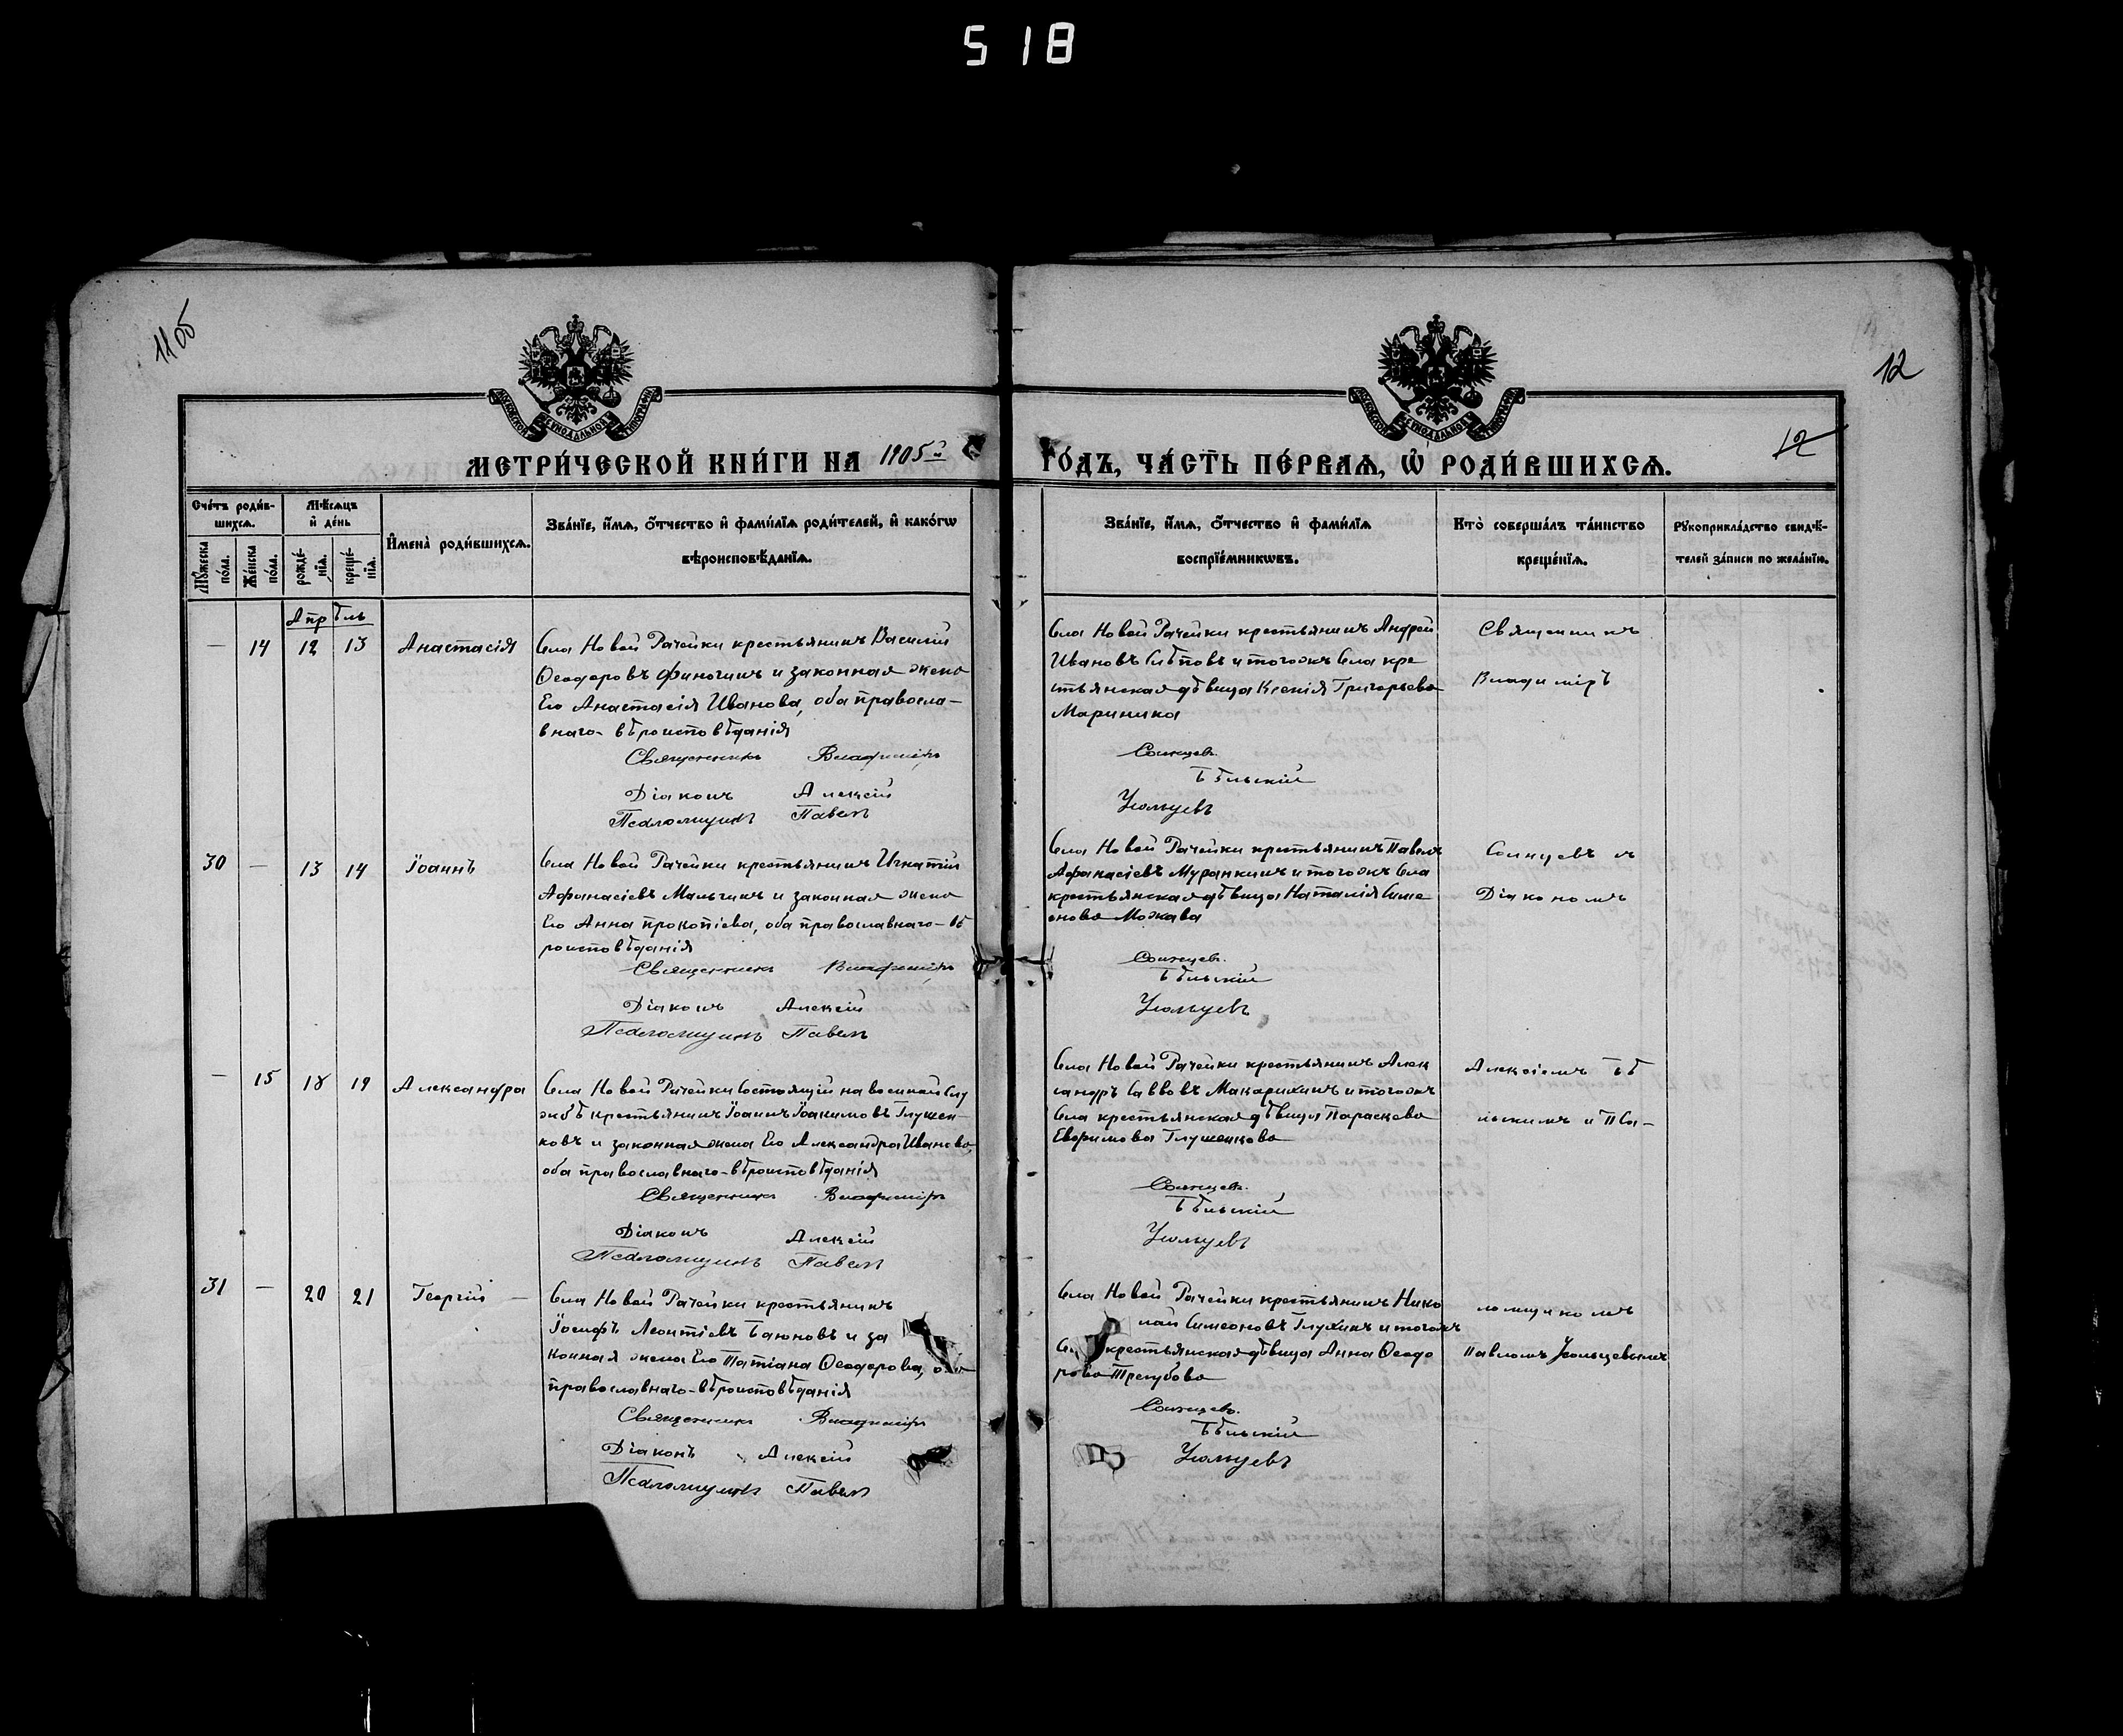 518
11об
12
МЕТРИ́ЧЕСКОЙ КНИ́ГИ НА 1905й
ГО́ДЪ, ЧА́СТЬ ПЕ́РВАѦ, Ѡ҆ РОДИ́ВШИХСѦ.
12
Сче́тъ роди́в-
шихсѧ.
Мꙋ́жеска
по́ла.
Же́нска
по́ла.
Мѣ́сѧцъ
и҆ де́нь
рожде́-
нїѧ.
креще́-
нїѧ.
И҆мена̀ роди́вшихсѧ.
Зва́нїе, и҆́мѧ, ѻ҆́тчество и҆ фами́лїѧ роди́телей, и҆ како́гѡ
вѣроисповѣ́данїѧ.
Зва́нїе, и҆́мѧ, ѻ҆́тчество и҆ фами́лїѧ
воспрїе́мникѡвъ.
Кто̀ соверша́лъ та́инство
креще́нїѧ.
Рꙋкоприкла́дство свидѣ́-
телей за́писи по жела́нїю.
Апрѣль
— 14 12 13 Анастасія
Села Новой Рачейки крестьянинъ Василій
Ѳеодоровъ Финогинъ и законная жена
Его Анастасія Иванова, оба правосла-
внаго-вѣроисповѣданія
Священникъ Владиміръ
Діаконъ Алексій
Псаломщикъ Павелъ
Села Новой Рачейки крестьянинъ Андрей
Ивановъ Слѣповъ и тогожъ Села кре
стьянская дѣвица Ксенія Григорьева
Маринина
Солнцевъ.
Бѣльскій
Усольцевъ
Священникъ
Владиміръ
30 — 13 14 Іоаннъ
Села Новой Рачейки крестьянинъ Игнатій
Афанасіевъ Мальгинъ и законная жена
Его Анна прокопіева, оба православнаго-вѣ
роисповѣданія
Священникъ Владиміръ
Діаконъ Алексій
Псаломщикъ Павелъ
Села Новой Рачейки крестьянинъ Павелъ
Афанасіевъ Муранкинъ и тогожъ Села
крестьянская дѣвица Наталія Симе
онова Можава
Солнцевъ.
Бѣльскій
Усольцевъ
Солнцевъ съ
Діакономъ
— 15 18 19 Александра
Села Новой Рачейки Состоящій на военной Слу
жбѣ крестьянинъ Іоаннъ Іоакимовъ Глушен-
ковъ и законная жена Его Александра Иванова,
оба православнаго-вѣроисповѣданія
Священникъ Владиміръ
Діаконъ Алексій
Псаломщикъ Павелъ
Села Новой Рачейки крестьянинъ Алек
сандръ Саввовъ Макарихинъ и тогожъ
Села крестьянская дѣвица Параскева
Евфимова Глушенкова
Солнцевъ.
Бѣльскій
Усольцевъ
Алексіемъ Бѣ
льскимъ и Пса-
31 — 20 21 Георгій —
Села Новой Рачейки крестьянинъ
Іосифъ Леонтіевъ Баюновъ и за
конная жена Его Татіана Ѳеодорова,
православнаго-вѣроисповѣданія
Священникъ Владиміръ
Діаконъ Алексій
Псаломщикъ Павелъ
Села Новой Рачейки крестьянинъ Нико
лай Симеоновъ Глухинъ и тогожъ
крестьянская дѣвица Анна Ѳеодо
рова Трегубова
Солнцевъ.
Бѣльскій
Усольцевъ
ломщикомъ
Павломъ Усольцевымъ